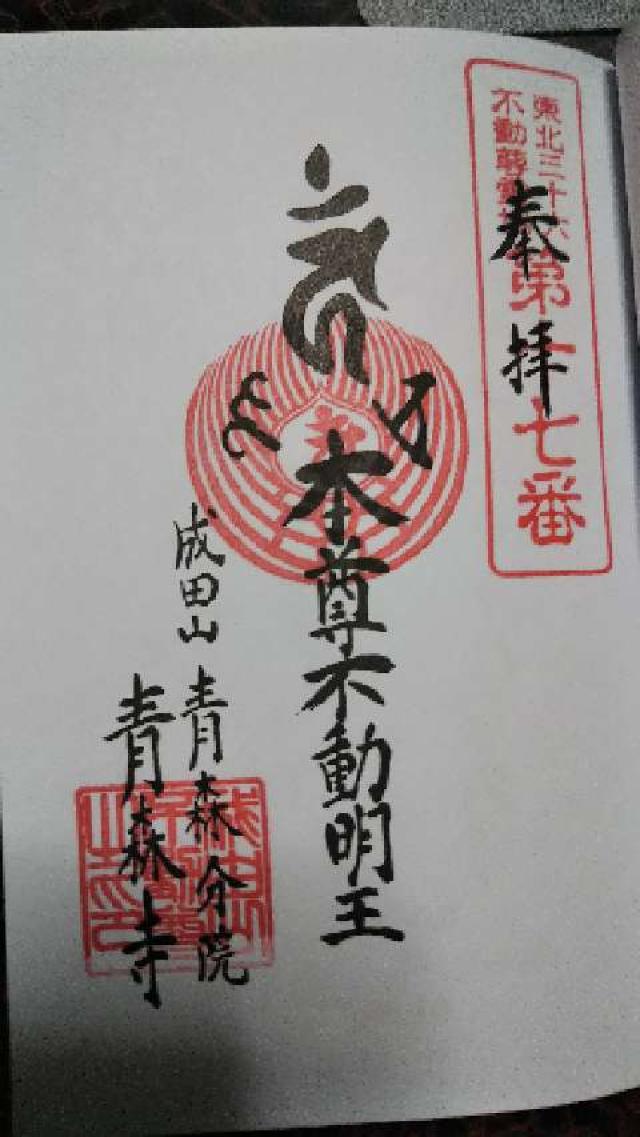 東北三十六
不動尊霊場
第十七番
奉拝
本尊不動明王
成田山青森分院
青森寺